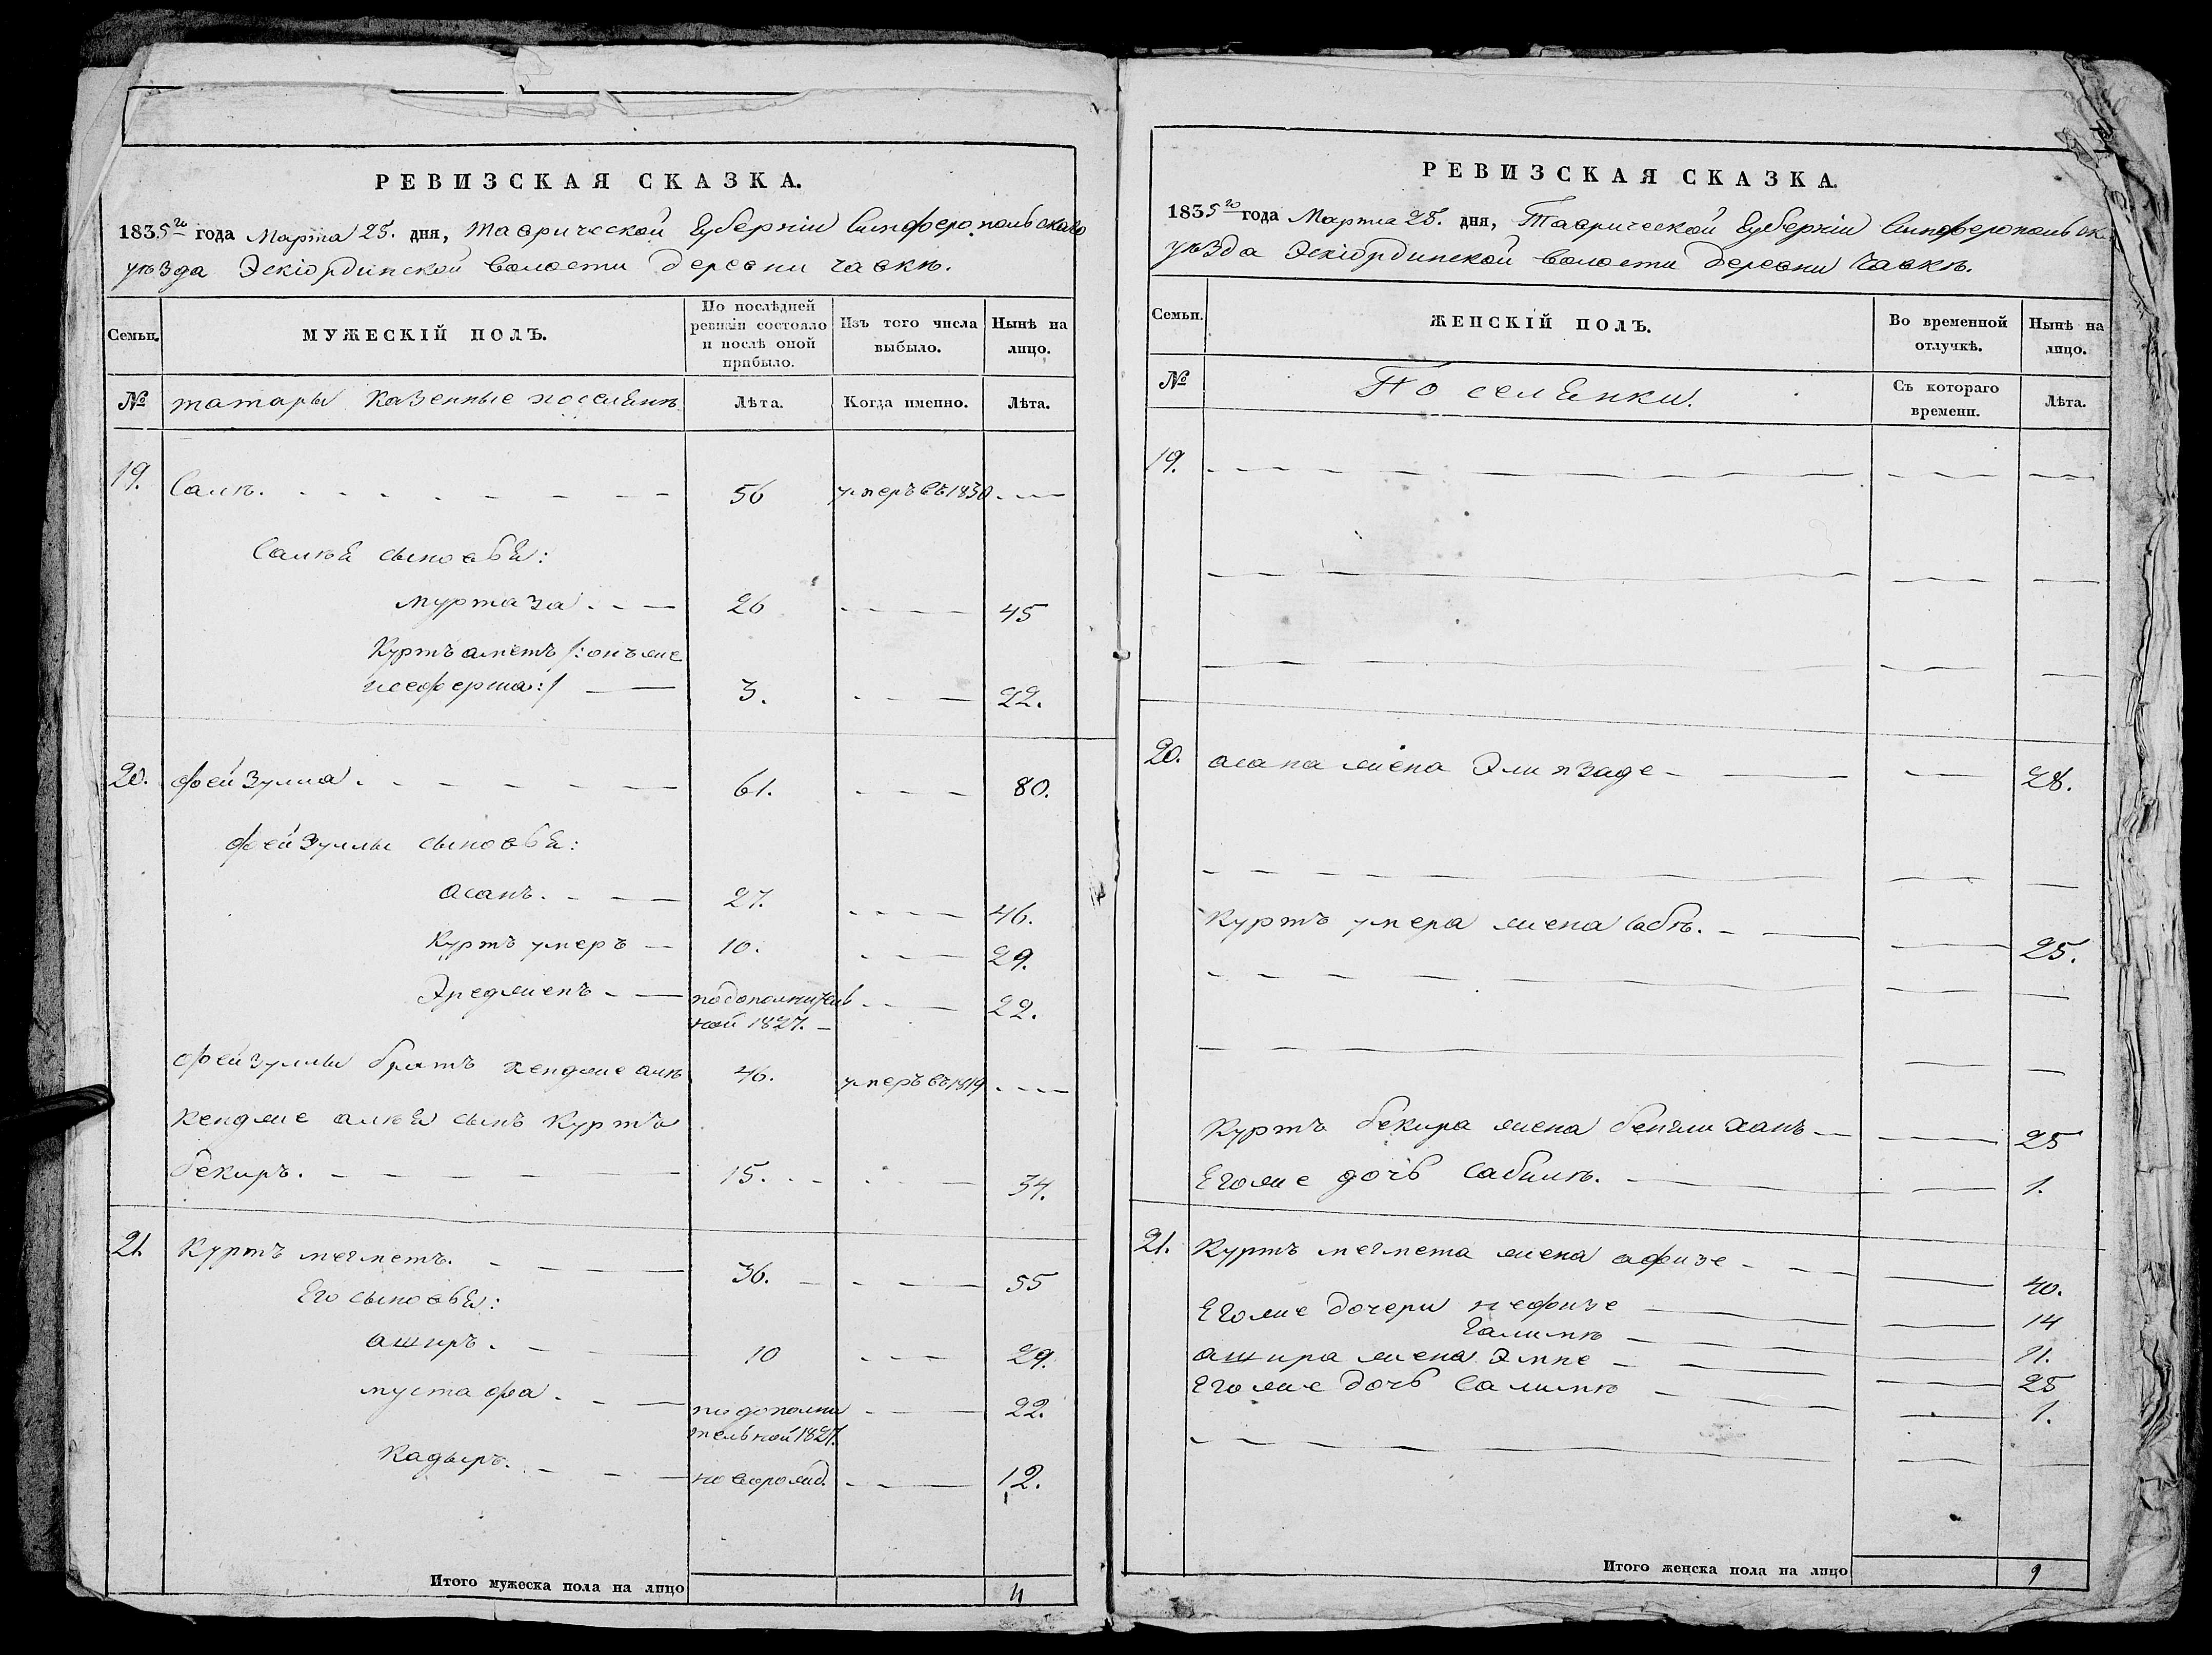 РЕВИЗСКАЯ СКАЗКА.
1835го года Марта 25. дня, Таврической Губерніи Симферопольскаго
уѣзда Эскіордынской волости деревни Чавкѣ.
Семьи.
МУЖЕСКІЙ ПОЛЪ.
По послѣдней ревизіи состояло и послѣ оной прибыло.
Изъ того числа выбыло.
Нынѣ на лицо.
№ татары казенные поселянѣ Лѣта. Когда именно. Лѣта.
19. Салѣ. 56 умеръ въ 1830
Салѣя сыновья:
Муртаза 26 45
Куртъ аметъ /:онъ же
сеферша:/ 3. 22.
20. фейзулла 61. 80.
фейзуллы сыновья:
асанъ. 27. 46.
Куртъ умеръ 10. 29.
Эреджепъ по дополнитель 22.
ной 1827.
фейзуллы братъ кендже алѣ 46. умеръ въ 1819
Кендже алѣя сынъ Куртъ
бекиръ. 15. 34.
21. Куртъ мегметъ. 36. 55
Его сыновья:
аширъ. 10 29.
мустафа. по дополни 22.
тельной 1827.
Кадыръ. новорожд. 12.
Итого мужеска пола на лицо 11
РЕВИЗСКАЯ СКАЗКА.
1835го года Марта 25. дня, Таврической Губерніи Симферопольск.
уѣзда Эскіордынской волости деревни Чавкѣ.
Семьи.
ЖЕНСКІЙ ПОЛЪ.
Во временной отлучкѣ.
Нынѣ на лицо.
№ Поселянки. Съ котораго времени. Лѣта.
19.
20. асана жена Элипзаде 28.
Куртъ умера жена сабѣ. 25.
Куртъ бекира жена бенглиханъ 25
Его же дочь Сабилѣ. 1.
21. Куртъ мегмета жена афизе 40.
Его же дочери нефизе 14
Галимѣ 11.
ашира жена Эмне 25
Его же дочь Салимѣ 1.
Итого женска пола на лицо 9